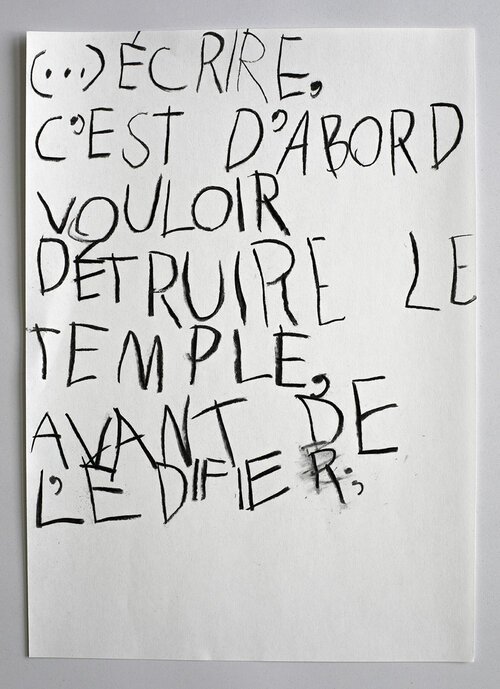 (...) ÉCRIRE,
C'EST D'ABORD
VOULOIR
DÉTRUIRE LE
TEMPLE,
AVANT DE
L'EDIFIER;